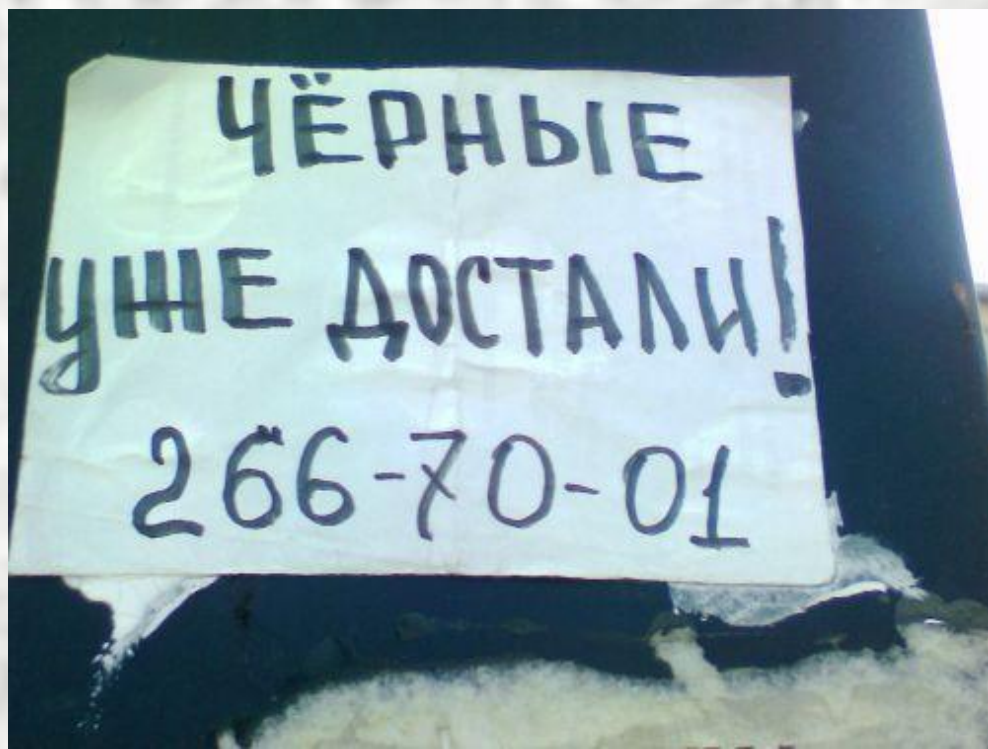 ЧЁРНЫЕ
УЖЕ ДОСТАЛИ!
266-70-01